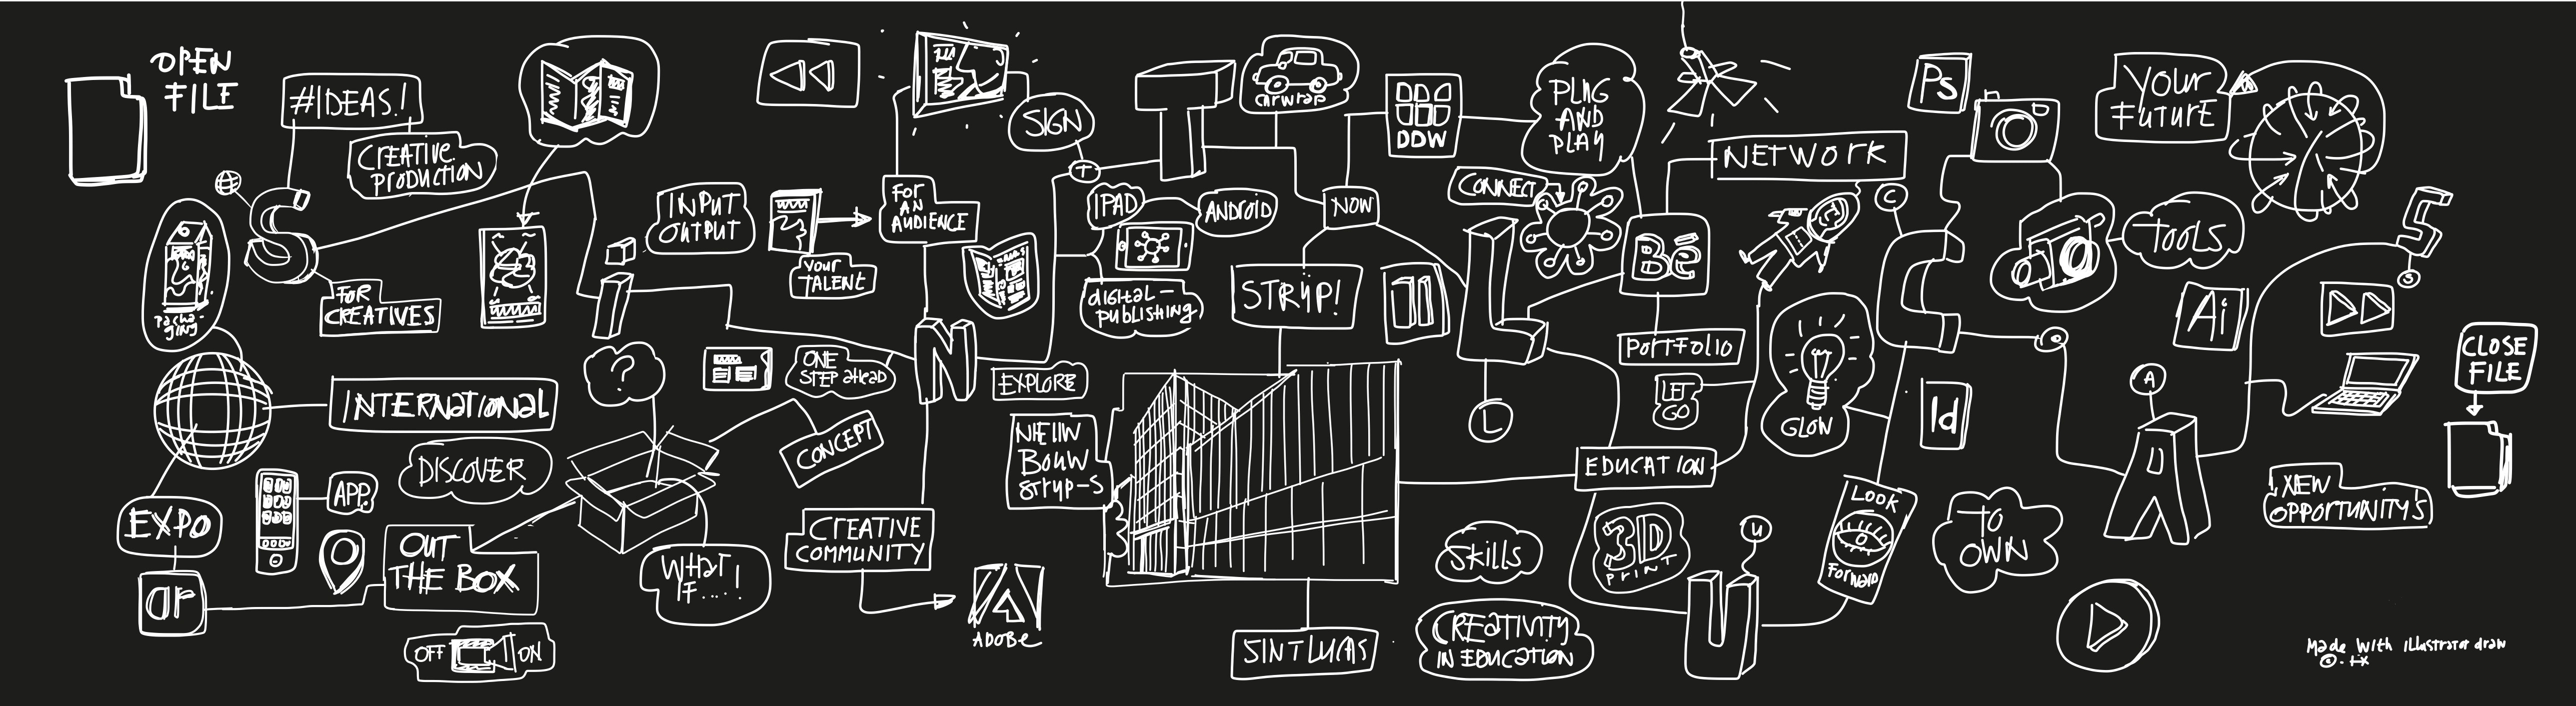 OPEN
FILE
#IDEAS!
CREATIVE
PRODUCTION
S
FOR
CREATIVES
Packa-
ging
INTERNATIONAL
DISCOVER
EXPO
ar
APP.
OUT
THE BOX
OFF
ON
?
I
INPUT
OUTPUT
YOUR
TALENT
FOR
AN
AUDIENCE
ONE
STEP ahEaD
CONCEPT
WHAT
IF....!
N
CREATIVE
COMMUNITY
ADOBE
EXPLORE
SIGN
T
T
carwrap
IPAD
ANDROID
digital-
publishing
NOW
STRYP!
NIEUW
BOUW
STRYP-S
SINTLUCAS
DDW
PLUG
AND
PLAY
CONNECT
L
L
Bē
PORTFOLIO
NETWORK
LET
GO
EDUCATION
SKILLS
CREATIVITY
IN EDUCATION
3D
PRINT
U
U
GLOW
LOOK
FORWARD
C
C
Ps
Id
TO
OWN
TOOLS
YOUR
FUTURE
A
A
Ai
S
S
NEW
OPPORTUNITY'S
CLOSE
FILE
Made With illustrator draw